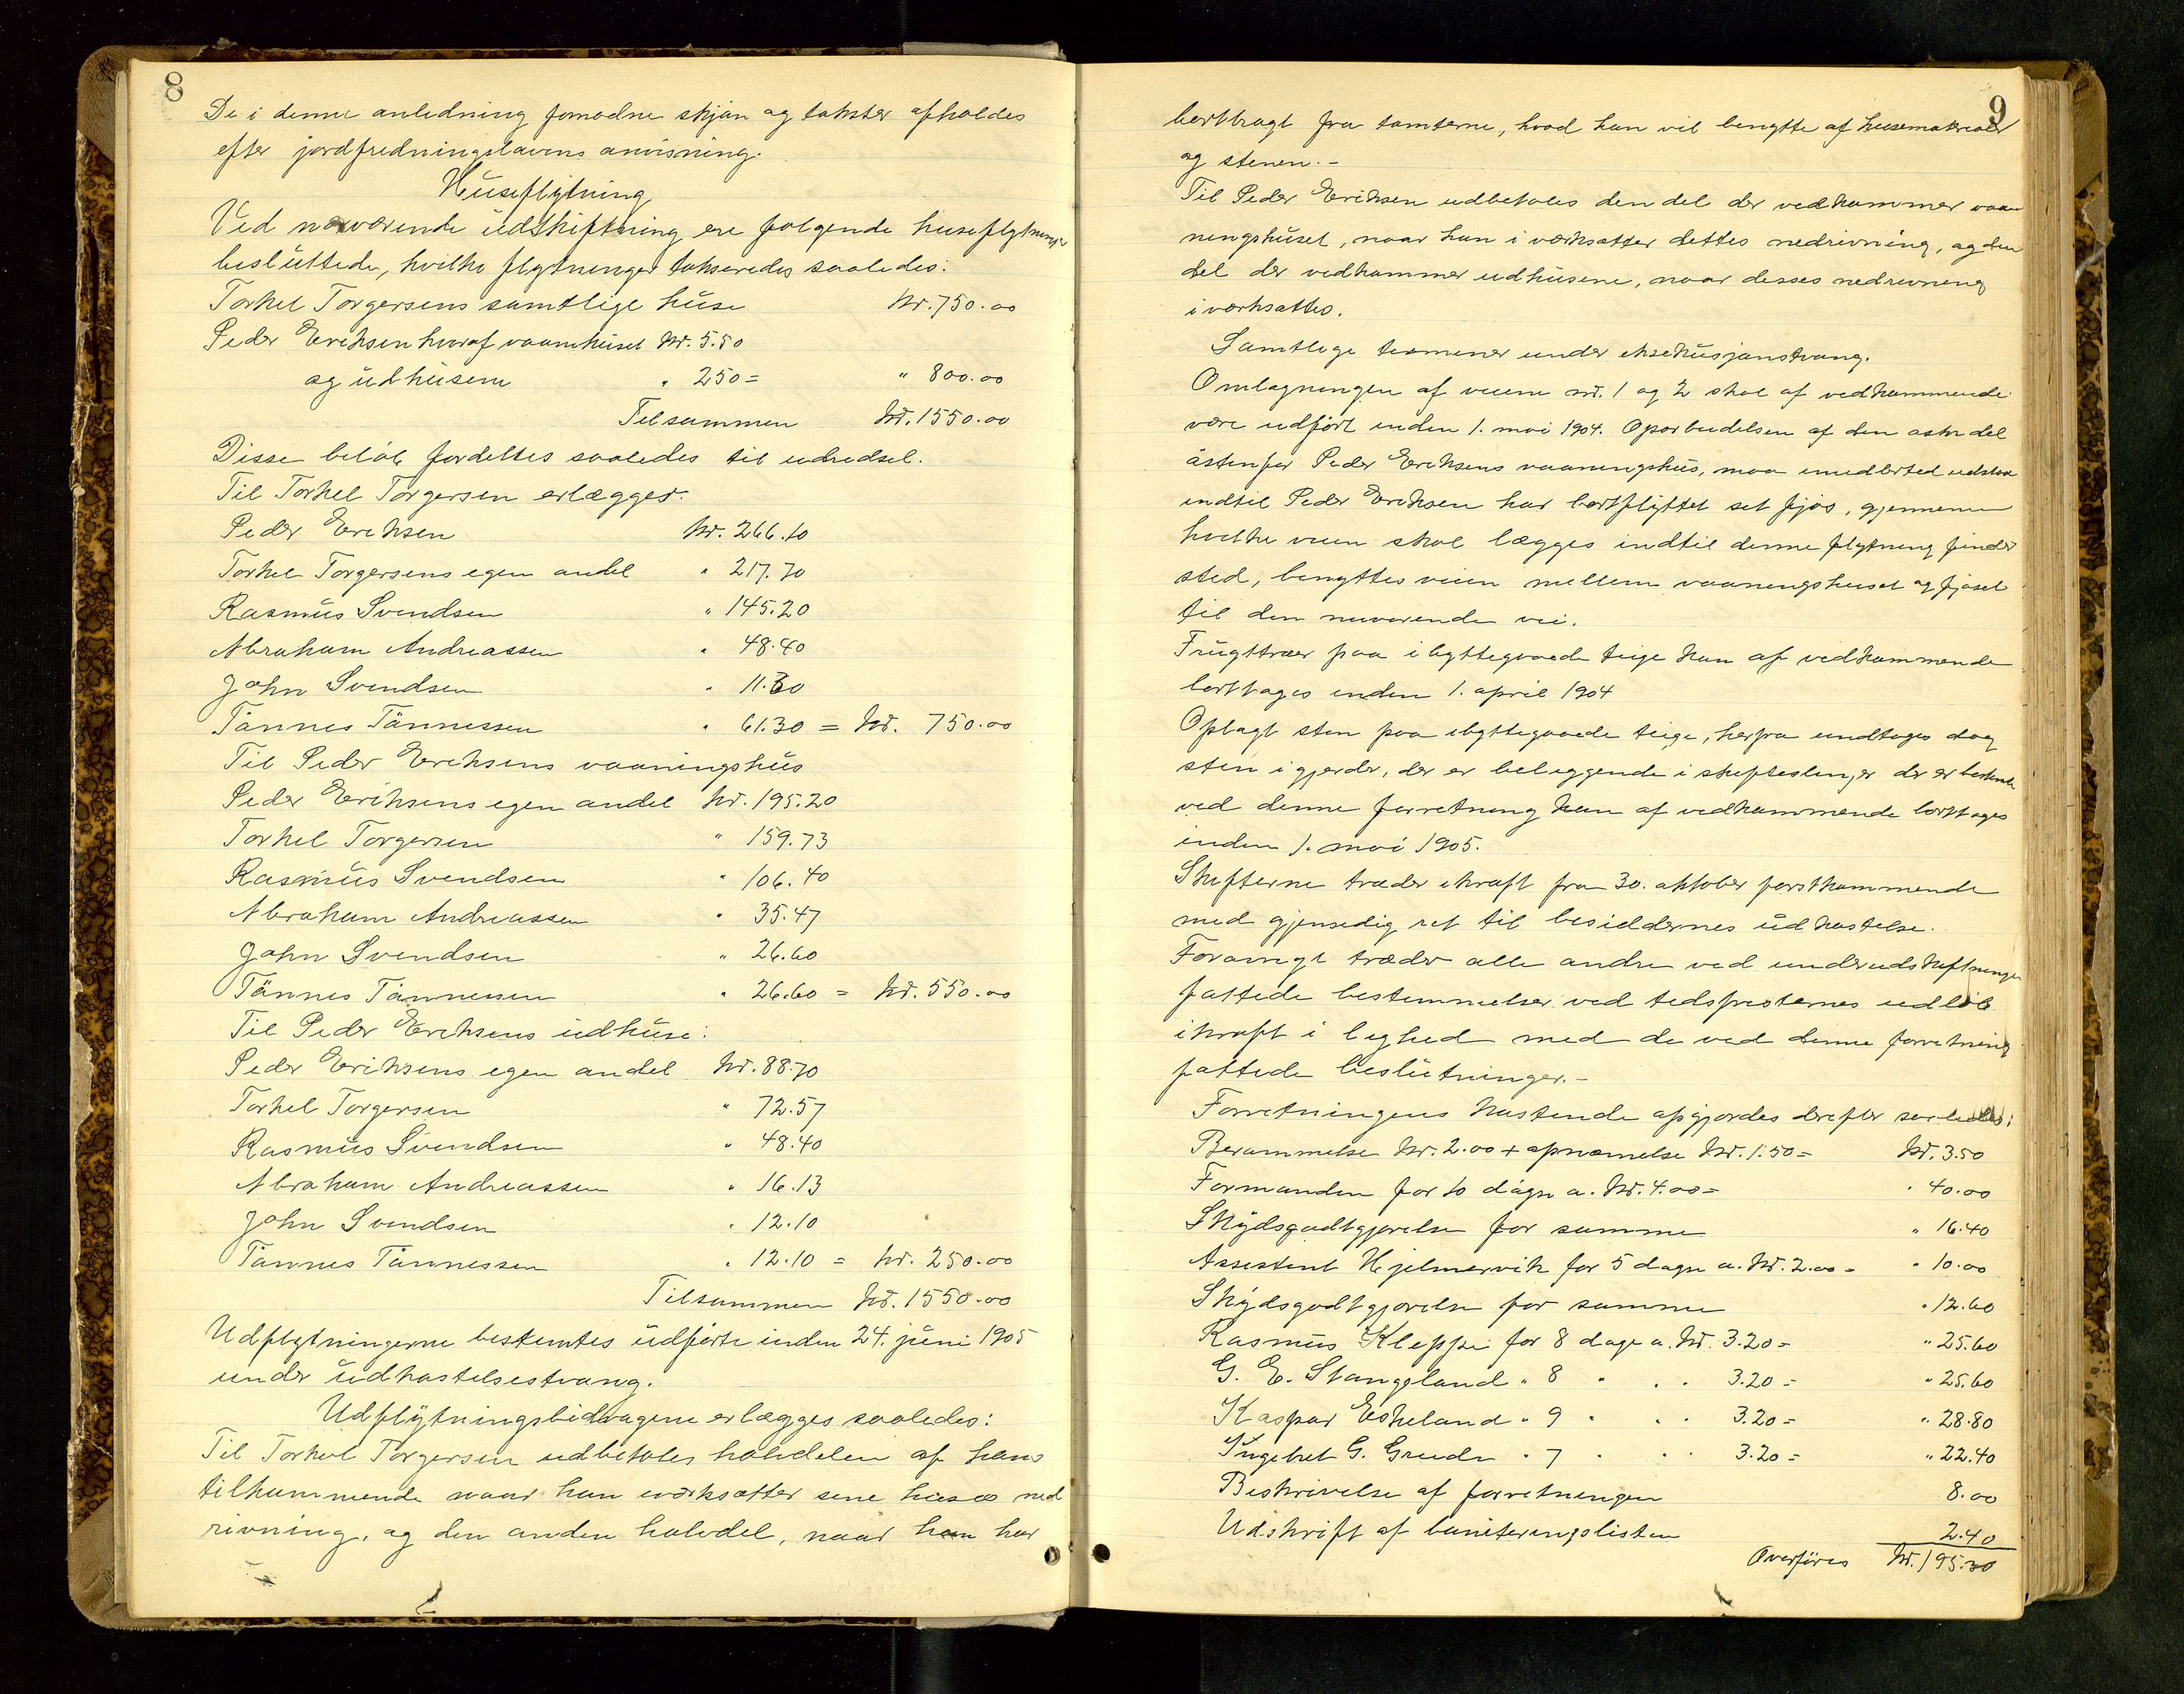 8
De i denne anledning fornødne skjøn og takster afholdes
efter jordfredningslovens anvisning.
Huseflytning
Ved nærværende udskiftning ere følgende huseflytninger
besluttede, hvilke flytninger takseredes saaledes:
Torkel Torgersens samtlige huse kr. 750.00
Peder Eriksen hvoraf vaanhuset kr. 5.50
og udhusene " 250 = " 800.00
Tilsammen kr. 1550.00
Disse beløb fordeltes saaledes til udredsel.
Til Torkel Torgersen erlægger:
Peder Eriksen kr. 266.10
Torkel Torgersens egen andel " 217.70
Rasmus Svendsen " 145.20
Abraham Andreassen " 48.40
John Svendsen " 11.30
Tønnes Tønnessen " 61.30 = kr. 750.00
Til Peder Eriksens vaaningshus
Peder Eriksens egen andel kr. 195.20
Torkel Torgersen " 159.73
Rasmus Svendsen " 106.40
Abraham Andreassen " 35.47
John Svendsen " 26.60
Tønnes Tønnessen " 26.60 = kr. 550.00
Til Peder Eriksens udhuse:
Peder Eriksens egen andel kr. 88.70
Torkel Torgersen " 72.57
Rasmus Svendsen " 48.40
Abraham Andreassen " 16.13
John Svendsen " 12.10
Tønnes Tønnessen " 12.10 = kr. 250.00
Tilsammen kr. 1550.00
Udflytningerne bestemtes udførte inden 24. juni 1905
under udkastelsestvang.
Udflytningsbidragene erlægges saaledes:
Til Torkel Torgersen udbetales halvdelen af hans
tilkommende naar han iværksætter sine huses ned
rivning, og den anden halvdel, naar han har
9
borttragt fra tomterne, hvad han vil benytte af husematerialer
og stenen.-
Til Peder Eriksen udbetales den del der vedkommer vaa
ningshuset, naar han iværksætter dettes nedrivning, og den
del der vedkommer udhusene, naar desses nedrivning
iværksættes.
Samtlige terminer under eksekusjonstvang.
Omlægningen af veiene nr. 1 og 2 skal af vedkommende
være udført inden 1. mai 1904. Oparbeidelsen af den del
østenfor Peder Eriksens vaaningshus, maa imidlertid udstaa
indtil Peder Eriksen har bortflyttet sit fjøs, gjennem
hvilke veien skal lægges indtil denne flytning finder
sted, benyttes veien mellem vaaningshuset og fjøset
til den nuværende vei.
Frugttræer paa ibyttegaaede teige kan af vedkommende
borttages inden 1. april 1904
Oplagt sten paa ibyttegaaede teige, herfra undtages dog
sten i gjerder, der er beliggende i skifteslinjer der er bestemte
ved denne forretning kan af vedkommende borttages
inden 1. mai 1905.
Skifterne træder ikraft fra 30. oktober førstkommende
med gjensidig ret til besiddernes udkastelse.
Forøvrigt træder alle andre ved underudskiftningen
fattede bestemmelser ved tidsfristernes udløb
ikraft i lighed med de ved denne forretning
fattede beslutninger.-
Forretningens kostende opgjordes derefter saaledes:
Berammelse kr. 2.00 + opnævnelse kr. 1.50 = kr. 3.50
Formanden for 10 dage a. kr. 4.00 = " 40.00
Skydsgodtgjørelse for samme " 16.40
Assistent Hjelmervik for 5 dage a. kr. 2.00 = " 10.00
Skydsgodtgjørelse for samme " 12.60
Rasmus Kleppe for 8 dage a. kr. 3.20 = " 25.60
G. E. Stangeland " 8 " " " 3.20 = " 25.60
Kaspar Eskeland " 9 " " " 3.20 = " 28.80
Ingebret G. Grude " 7 " " " 3.20 = " 22.40
Beskrivelse af forretningen 8.00
Udskrift af boniteringslisten 2.40
Overføres kr. 195.30